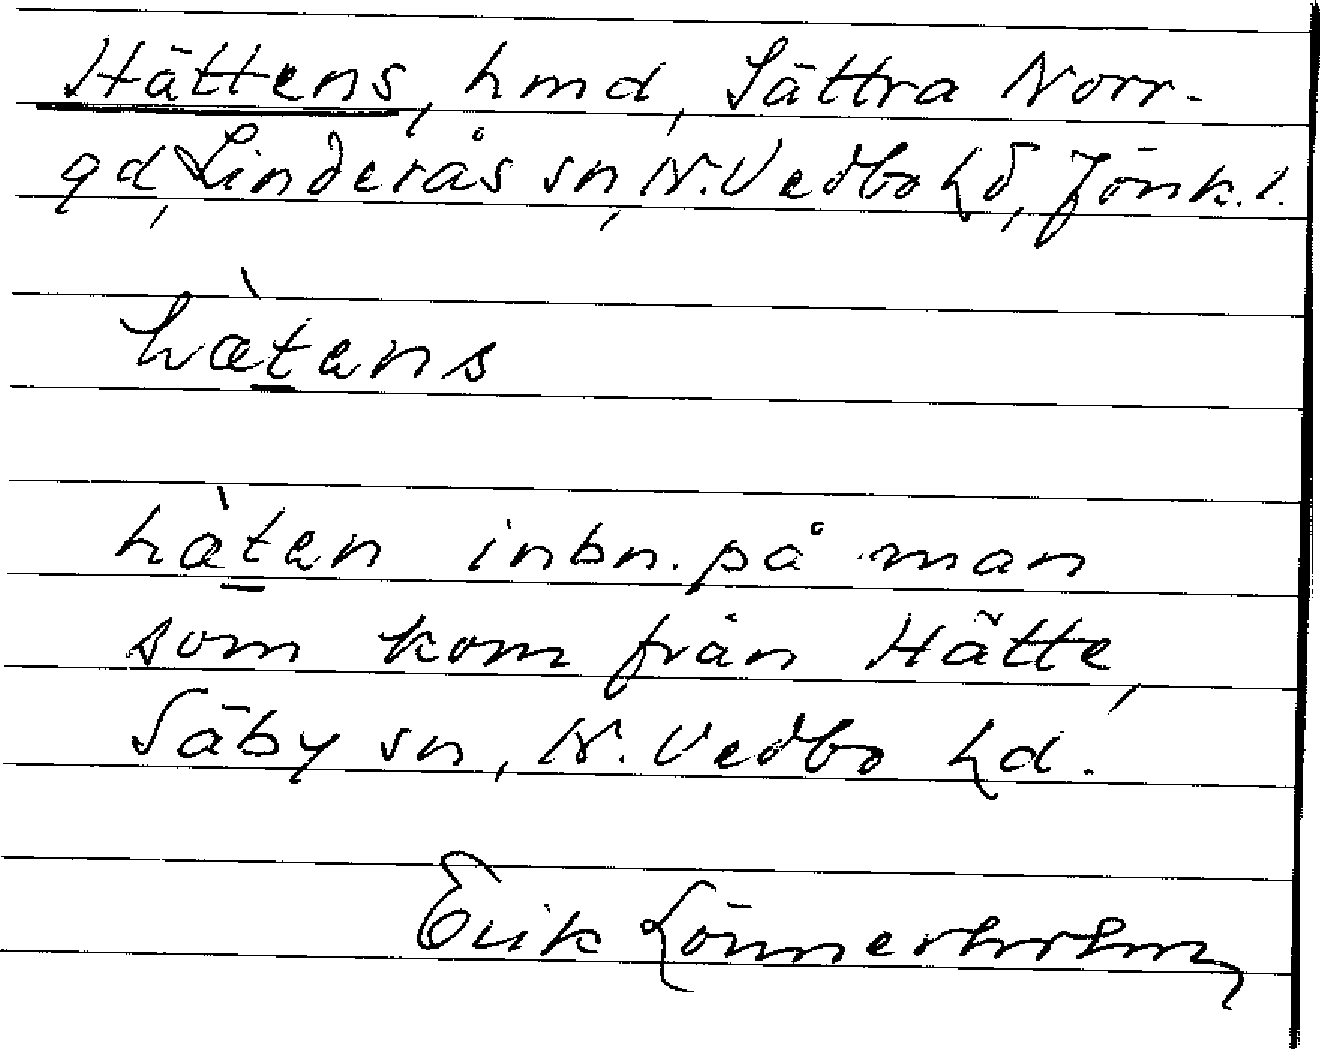 Hättens, hmd, Sättra Norr-
gd, Linderås sn, N. Vedbo hd, Jönk. l.
hæ̀tans
hæ̀tan inbn. på man
som kom från Hätte,
Säby sn, N. Vedbo hd.
Erik Lönnerholm